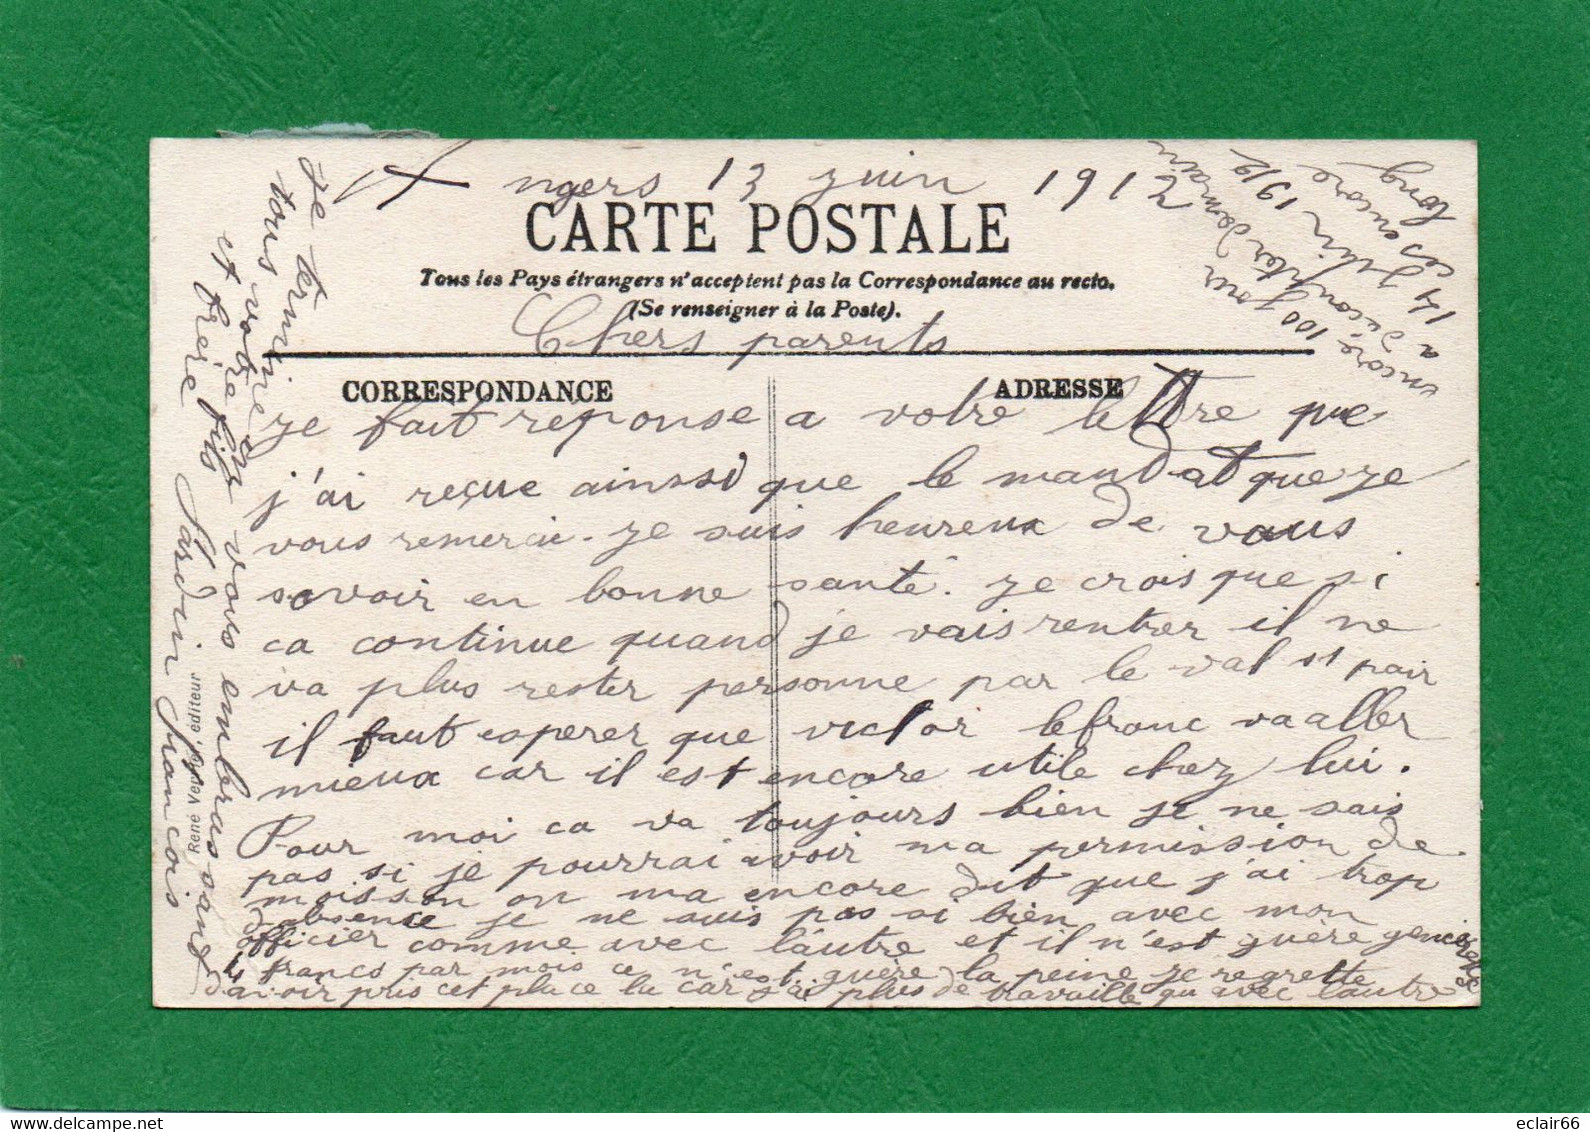 Angers 13 juin 1912
CARTE POSTALE
Tous les Pays étrangers n'acceptent pas la Correspondance au recto.
(Se renseigner à la Poste).
Chers parents
CORRESPONDANCE
ADRESSE
je fait reponse a votre lettre que
j'ai reçue ainssi que le mandat que je
vous remerci. je suis heureux de vous
savoir en bonne santé. je crois que si
ca continue quand je vais rentrer il ne
va plus rester personne par le val st pair
il faut esperer que victor lefranc va aller
mieux car il est encore utile chez lui.
Pour moi ca va toujours bien je ne sais
pas si je pourrai avoir ma permission de
moisson on ma encore dit que j'ai trop
d'absence je ne suis pas si bien avec mon
officier comme avec l'autre et il n'est guère
4 francs par mois ce n'est guère la peine je regrette
d'avoir pris cet place la car j'ai plus de travaille qu avec l'autre
je termine en
tous votre fils vous embrassant
et frère
Jardin francois
René Veyley, éditeur
encore 100 jour
a decompter demain
14 Juin 1912
ces encore
long
eclair66